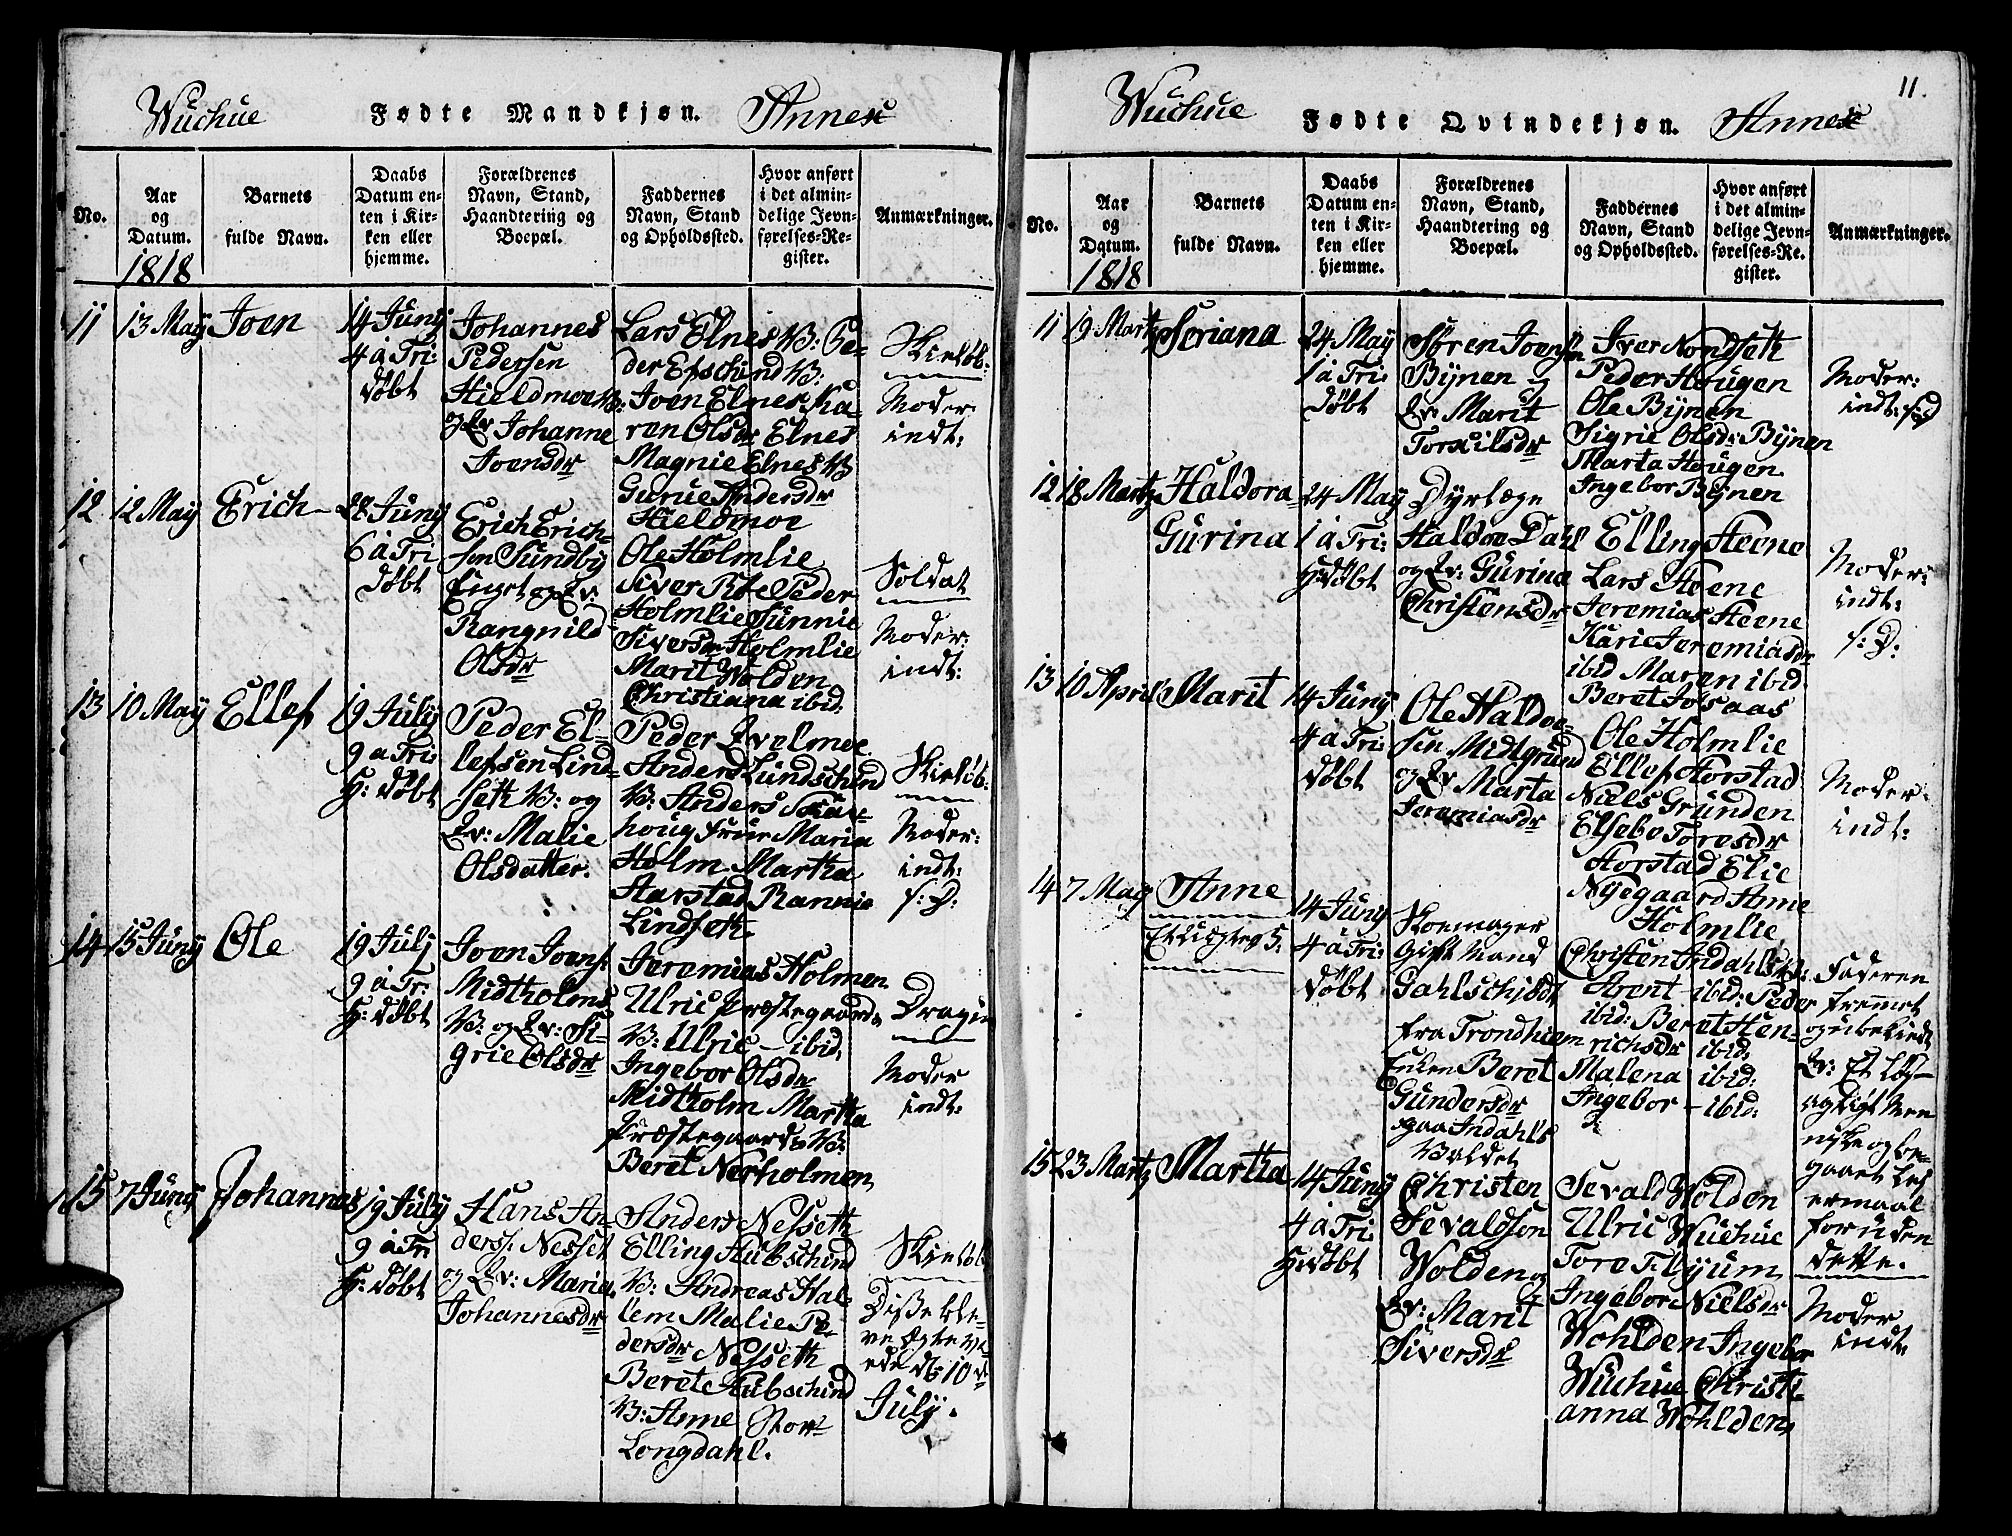 Wuchue Fødte Mandkjøn. Annex
No.
Aar
og
Datum.
1818
Barnets
fulde Navn.
Daabs
Datum en-
ten i Kir-
ken eller
hjemme.
Forældrenes
Navn, Stand,
Haandtering og
Boepæl.
Faddernes
Navn, Stand
og Opholdssted.
Hvor anført
i det almin-
delige Jevn-
førelses-Re-
gister.
Anmærkninger.
11
13 May
Joen
14 Juny
4 à Tri:
døbt
Johannes
Pedersen
Hieldmoe
og Johanne
Joensdr
Lars Elnes
Joen Elnes Ka-
ren Olsdr Elnes
Magnie Elnes
Gurue Andersdr
Hieldmoe
Moder
indt:
12
12 May
Erich
28 Juny
6 à Tri
døbt
Erich Erich-
sen Sundby
Rangnild
Olsdr
Ole Holmlie
Siver Peder
Holmlie Sunnie
Siversdr Holmlie
Marit Wolden
Christiana ibid
Soldat
Moder:
indt:
13
10 May
Ellef
19 July
9 a Tri:
H: døbt
Peder El-
lefsen Lind-
seth og
Malie
Olsdatter.
Peder
Anders Lundschind
Anders
houg Maria
Holm Martha
Harstad Rannie
Lindseth
Moder:
indt:
14
15 Juny
Ole
19 July
9 à Tr:
H: døbt
Joen Joens:
Midtholms
og Si-
grie Olsdr
Jeremias Holmen
Ulric Præstegaards
Ulric - ibid
Ingebor Olsdr
Midtholm Martha
Præstegaards
Beret Nerholmen
Dragun
Moder
indt:
15
7 Juny
Johannes
19 July
9 à Tri
H: døbt
Hans An-
ders: Nesset
og Maria
Johannesdr
Anders Nesseth
Elling Hubschind
Andreas Hal-
lem Malie Pe-
dersdr Nesseth
Beret Hubschind
Anne Stor
Longdahl.
July.
11.
Wuchue Fødte Qvindekjøn. Annex
No.
Aar
og
Datum.
1818
Barnets
fulde Navn.
Daabs
Datum en-
ten i Kir-
ken eller
hjemme.
Forældrenes
Navn, Stand,
Haandtering og
Boepæl.
Faddernes
Navn, Stand
og Opholdssted.
Hvor anført
i det almin-
delige Jevn-
førelses-Re-
gister.
Anmærkninger.
11
19 Martz
Soriana
24 May
1 à Tri:
døbt
Søren Joensen
Bynen
Marit
Torkilsdr
Iver Nordseth
Peder Hougen
Ole Bynen
Sigrie Olsdr: Bynen
Marta Hougen
Ingebor Bynen
Moder:
indt:
12
18 Martz
Haldora
Gurina
24 May
1 à Tri:
H: døbt
Dyrlæge
Haldor Dahl
og Gurina
Christensdr
Elling Steene
Lars Steene
Jeremias Steene
Karie Jeremiasdr
ibid Maren ibid
Beret Aasaas
Moder:
indt:
13
10 April
Marit
14 Juny
4 à Tri:
døbt
Ole Haldor-
sen Midtgrund
og Marta
Jeremiasdr
Ole Holmlie
Ellef Storstad
Niels Grunden
Elsebe Toresdr
Storstad Elie
Nygaard Anne
Holmlie
Moder
indt:
14
7 May
Anne
14 Juny
4 à Tri:
døbt
Skomager
Gift Mand
Gahlschiødt
fra Trondhiem
Beret
Gundersdr
paa Indahls
Valdet
Christen Indahls
Arent - ibid: Peder
ibid: Beret Hen-
richsdr ibid:
Malena ibid:
Ingebor - ibid:
Faderen
fremet
dette.
15
23 Martz
Martha
14 Juny
4 à Tri:
H: døbt
Christen
Sevaldson
Wolden og
Marit
Siversdr
Sevald Wolden
Ulric Wuchue
Tore
Ingebor Nielsdr
Wohlden Ingebor
Wuchue Christi-
anna Wohlden
Moder
indt: